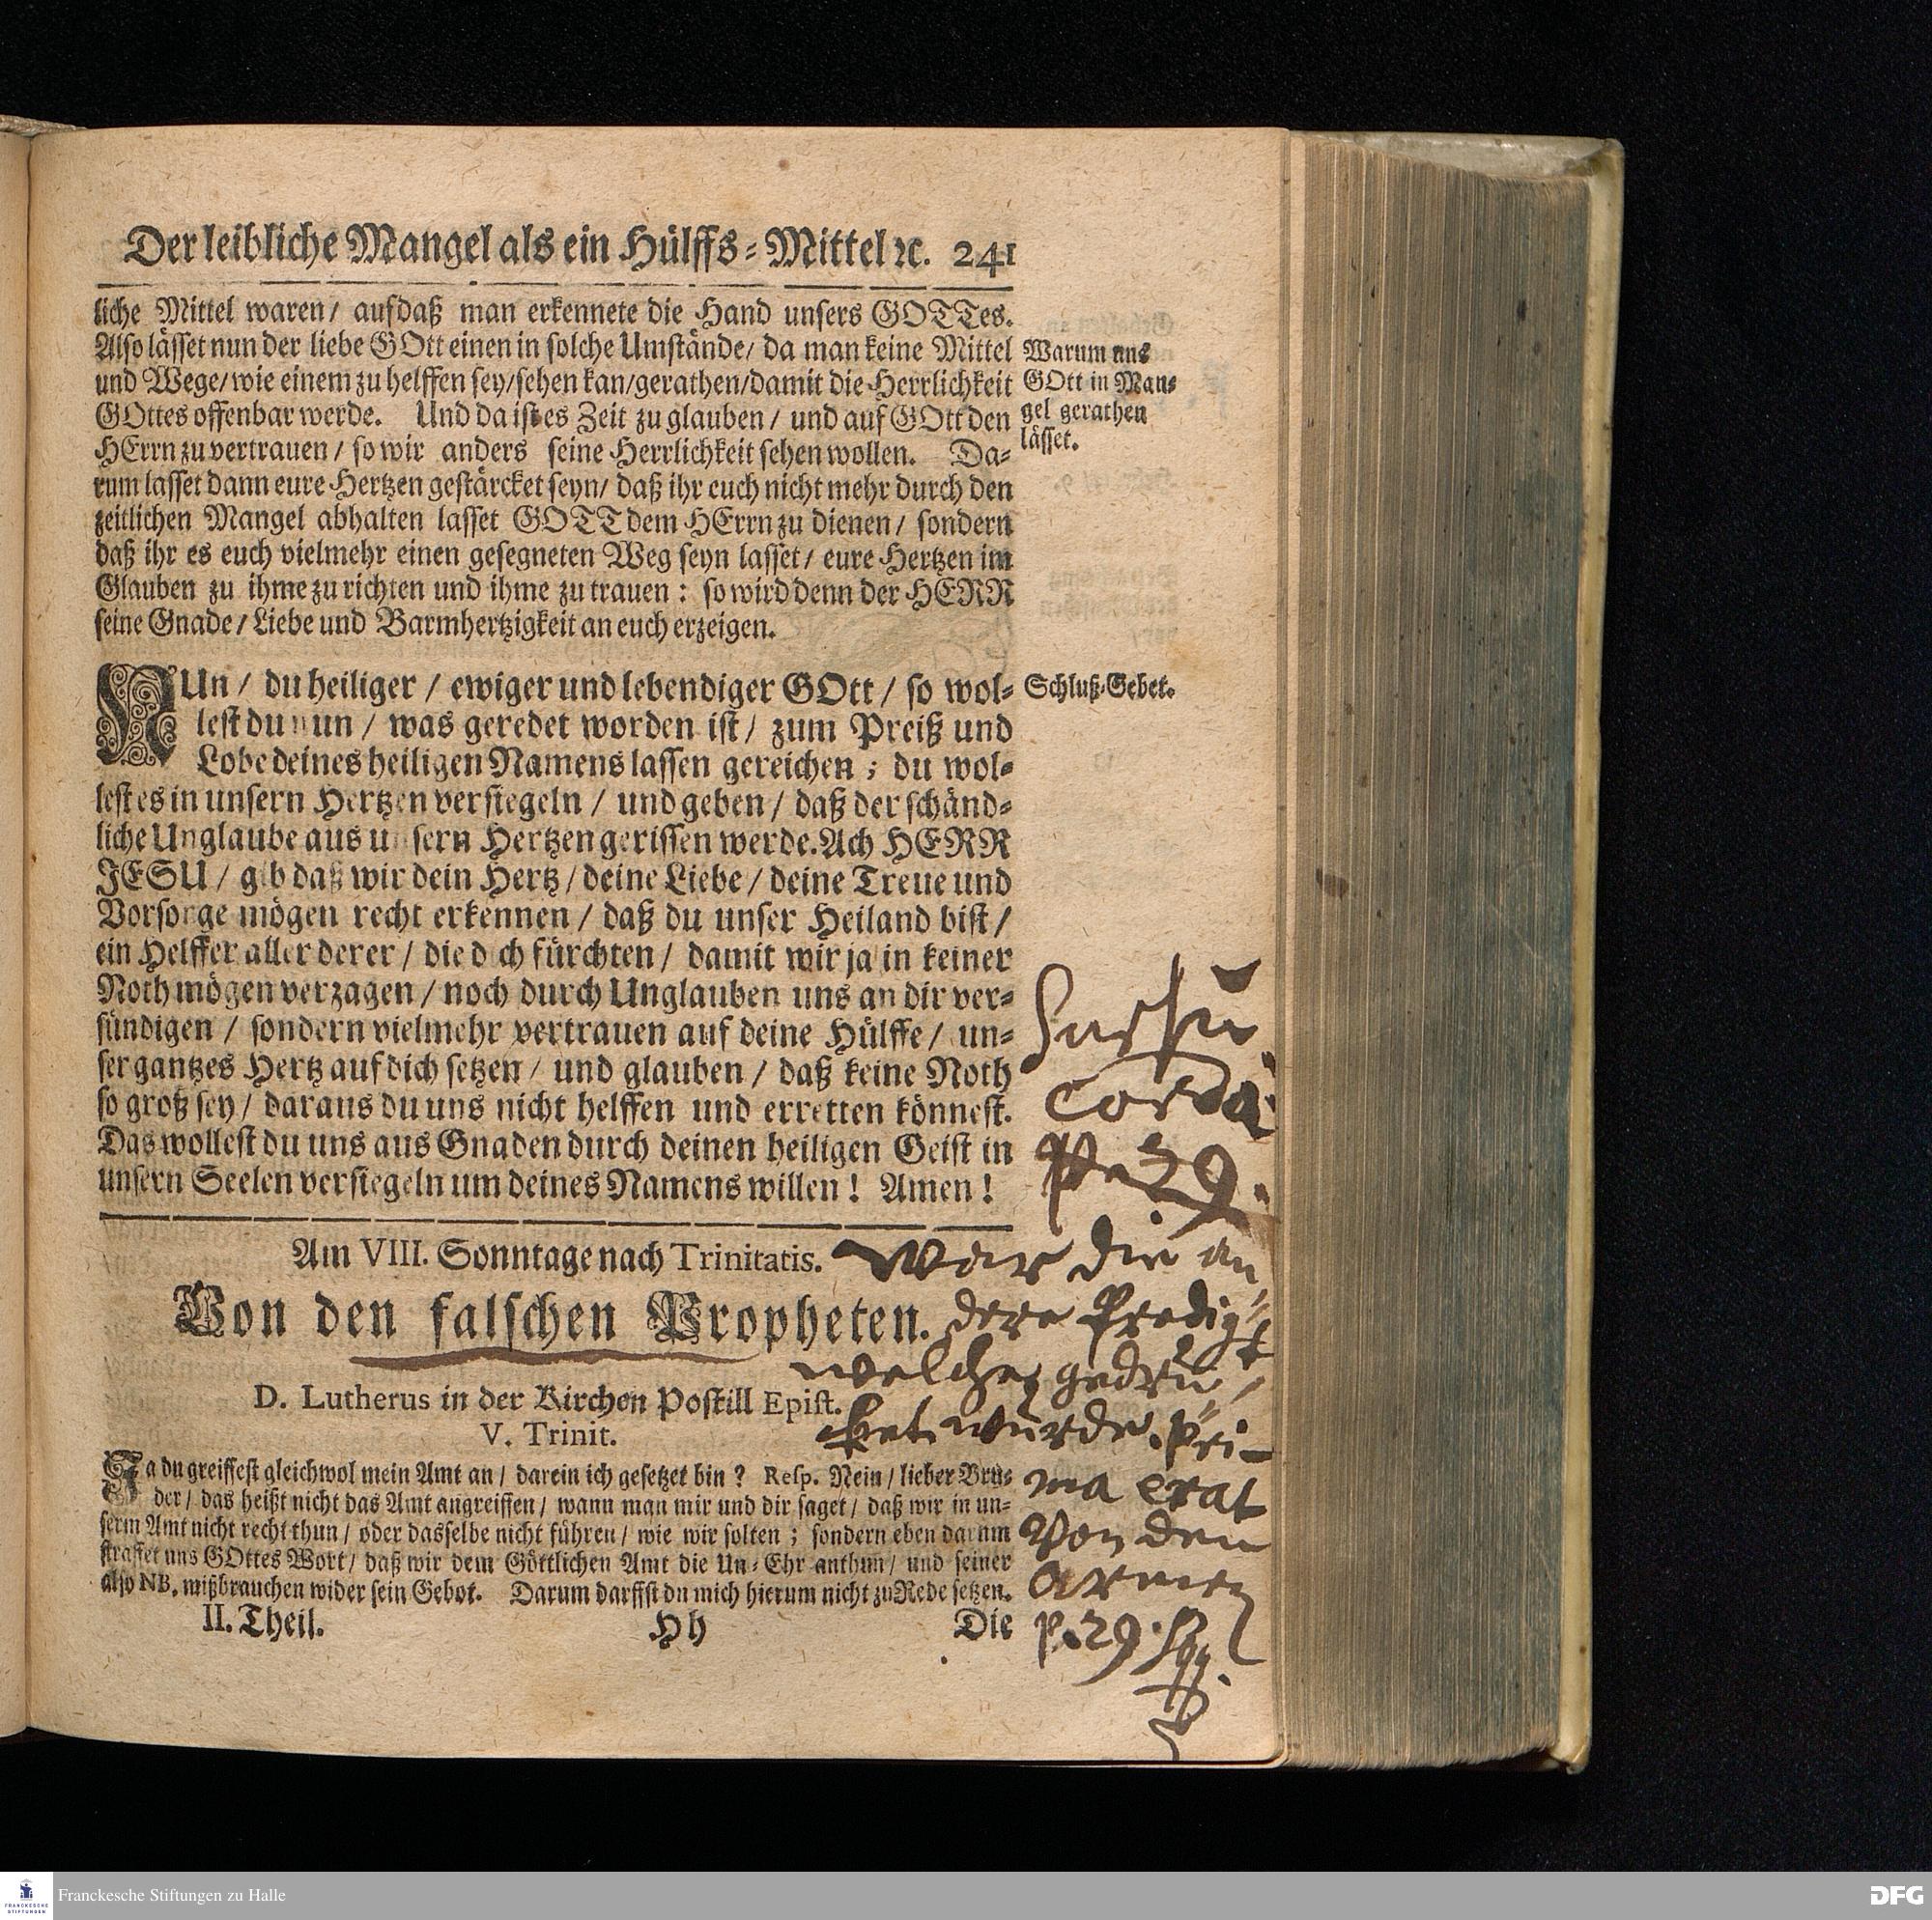 Der leibliche Mangel als ein Hülffs-Mittel ꝛc. 241
liche Mittel waren / aufdaß man erkennete die Hand unsers GOTTes.
Also lässet nun der liebe GOtt einen in solche Umstände / da man keine Mittel
und Wege / wie einem zu helffen sey / sehen kan / gerathen / damit die Herrlichkeit
GOttes offenbar werde. Und da ist es Zeit zu glauben / und auf GOtt den
HErrn zu vertrauen / so wir anders seine Herrlichkeit sehen wollen. Da-
rum lasset dann eure Hertzen gestärcket seyn / daß ihr euch nicht mehr durch den
zeitlichen Mangel abhalten lasset GOTT dem HErrn zu dienen / sondern
daß ihr es euch vielmehr einen gesegneten Weg seyn lasset / eure Hertzen im
Glauben zu ihme zu richten und ihme zu trauen : so wird denn der HERR
seine Gnade / Liebe und Barmhertzigkeit an euch erzeigen.
Warum uns
GOtt in Man-
gel gerathen
lässet.
NUn / du heiliger / ewiger und lebendiger GOtt / so wol-
lest du nun / was geredet worden ist / zum Preiß und
Lobe deines heiligen Namens lassen gereichen ; du wol-
lest es in unsern Hertzen versiegeln / und geben / daß der schänd-
liche Unglaube aus unsern Hertzen gerissen werde. Ach HERR
JESU / gib daß wir dein Hertz / deine Liebe / deine Treue und
Vorsorge mögen recht erkennen / daß du unser Heiland bist /
ein Helffer aller derer / die dich fürchten / damit wir ja in keiner
Noth mögen verzagen / noch durch Unglauben uns an dir ver-
sündigen / sondern vielmehr vertrauen auf deine Hülffe / un-
ser gantzes Hertz auf dich setzen / und glauben / daß keine Noth
so groß sey / daraus du uns nicht helffen und erretten könnest.
Das wollest du uns aus Gnaden durch deinen heiligen Geist in
unsern Seelen versiegeln um deines Namens willen ! Amen !
Schluß-Gebet.
Am VIII. Sonntage nach Trinitatis.
Von den falschen Propheten.
D. Lutherus in der Kirchen Postill Epist.
V. Trinit.
Ja du greiffest gleichwol mein Amt an / darein ich gesetzet bin ? Resp. Nein / lieber Bru-
der / das heißt nicht das Amt angreiffen / wann man mir und dir saget / daß wir in un-
serm Amt nicht recht thun / oder dasselbe nicht führen / wie wir solten ; sondern eben darum
straffet uns GOttes Wort / daß wir dem Göttlichen Amt die Un-Ehr anthun / und seiner
also NB. mißbrauchen wider sein Gebot. Darum darffst du mich hierum nicht zu Rede setzen.
II. Theil. Hh Die
corda
war die an
dere Predigt
welche gedru
ket wurde. Pri-
ma erat
Von den
armen
p. 29. sqq.
Franckesche Stiftungen zu Halle
FRANCKESCHE
STIFTUNGEN
DFG